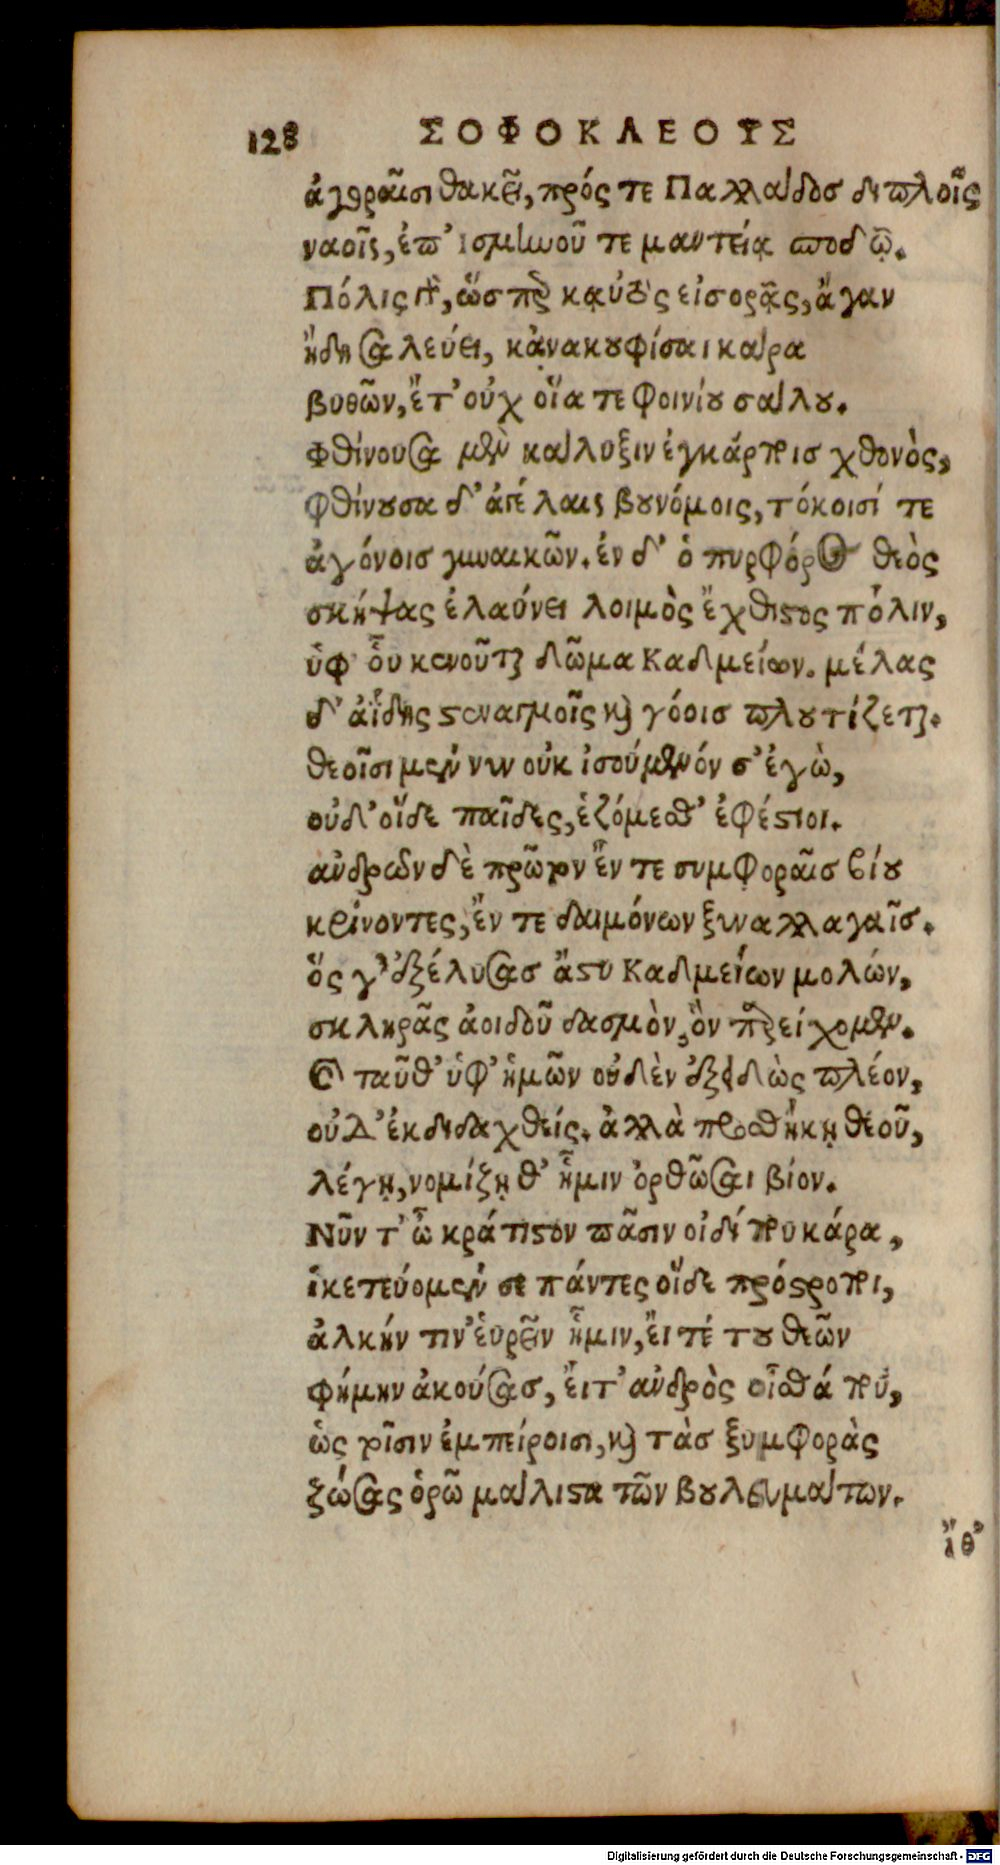 128 ΣΟΦΟΚΛΕΟΥΣ
ἀγοραῖσι θακεῖ, πρός τε Παλλάδοσ διπλοῖς
ναοῖς, ἐπ' ἰσμηνοῦ τε μαντείᾳ σποδῷ.
Πόλις γὰρ, ὥσπερ καὐτὸς εἰσορᾷς, ἄγαν
ἤδη σαλεύει, κᾀνακουφίσαι κάρα
βυθῶν, ἔτ' οὐχ οἵα τε φοινίου σάλου.
Φθίνουσα μὲν κάλυξιν ἐγκάρποισ χθονὸς,
φθίνουσα δ' ἀγέλαις βουνόμοις, τόκοισί τε
ἀγόνοισ γυναικῶν. ἐν δ' ὁ πυρφόρος θεὸς
σκήψας ἐλαύνει λοιμὸς ἔχθιστος πόλιν,
ὑφ' οὗ κενοῦται δῶμα Καδμείων. μέλας
δ' ἀΐδης στεναγμοῖς καὶ γόοισ πλουτίζεται.
θεοῖσι μέν νυν οὐκ ἰσούμενόν σ' ἐγὼ,
οὐδ' οἵδε παῖδες, ἑζόμεσθ' ἐφέστιοι.
ἀνδρῶν δὲ πρῶτον ἔν τε συμφοραῖσ βίου
κρίνοντες, ἔν τε δαιμόνων ξυναλλαγαῖσ.
ὅς γ' ἐξέλυσασ ἄστυ Καδμείων μολών,
σκληρᾶς ἀοιδοῦ δασμὸν, ὃν παρείχομεν.
καὶ ταῦθ' ὑφ' ἡμῶν οὐδὲν ἐξειδὼς πλέον,
οὐδ' ἐκδιδαχθείς. ἀλλὰ προσθήκῃ θεοῦ,
λέγῃ, νομίζῃ θ' ἧμιν ὀρθῶσαι βίον.
Νῦν τ' ὦ κράτιστον πᾶσιν οἰδίπου κάρα,
ἱκετεύομέν σε πάντες οἵδε πρόστροποι,
ἀλκήν τιν' εὑρεῖν ἧμιν, εἴ τέ του θεῶν
φήμην ἀκούσασ, εἴτ' ἀνδρὸς οἶσθά που,
ὡς τοῖσιν ἐμπείροισι, καὶ τὰσ ξυμφορὰς
ζώσας ὁρῶ μάλιστα τῶν βουλευμάτων.
ἴθ'
Digitalisierung gefördert durch die Deutsche Forschungsgemeinschaft - DFG